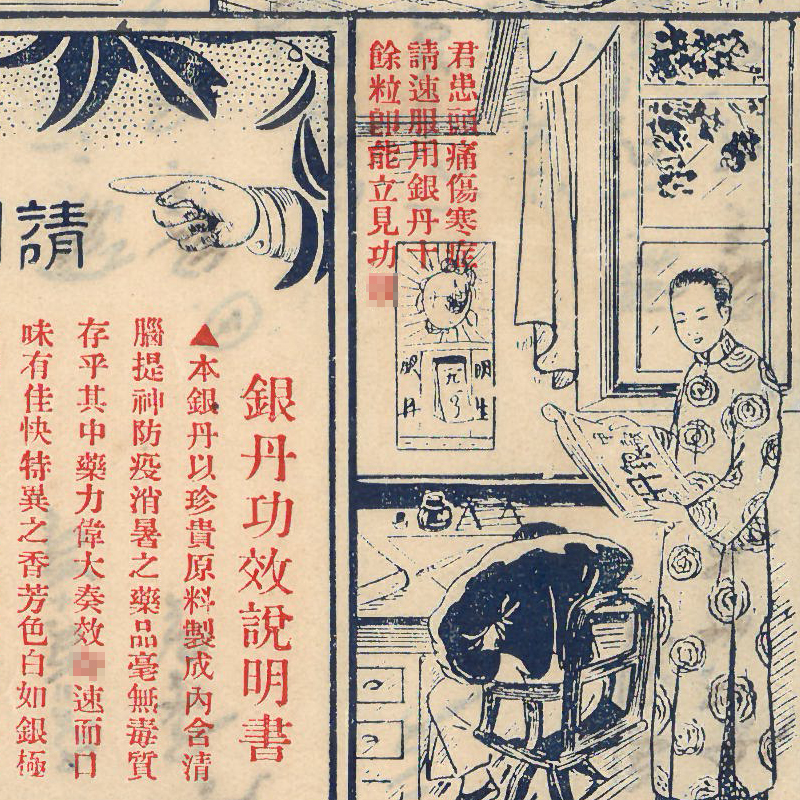 君患頭痛傷寒症
請速服用銀丹十
餘粒即能立見功
請
銀丹功效說明書
▲本銀丹以珍貴原料製成內含清
腦提神防疫消暑之藥品毫無毒質
存乎其中藥力偉大奏效速而口
味有佳快特異之香芳色白如銀極